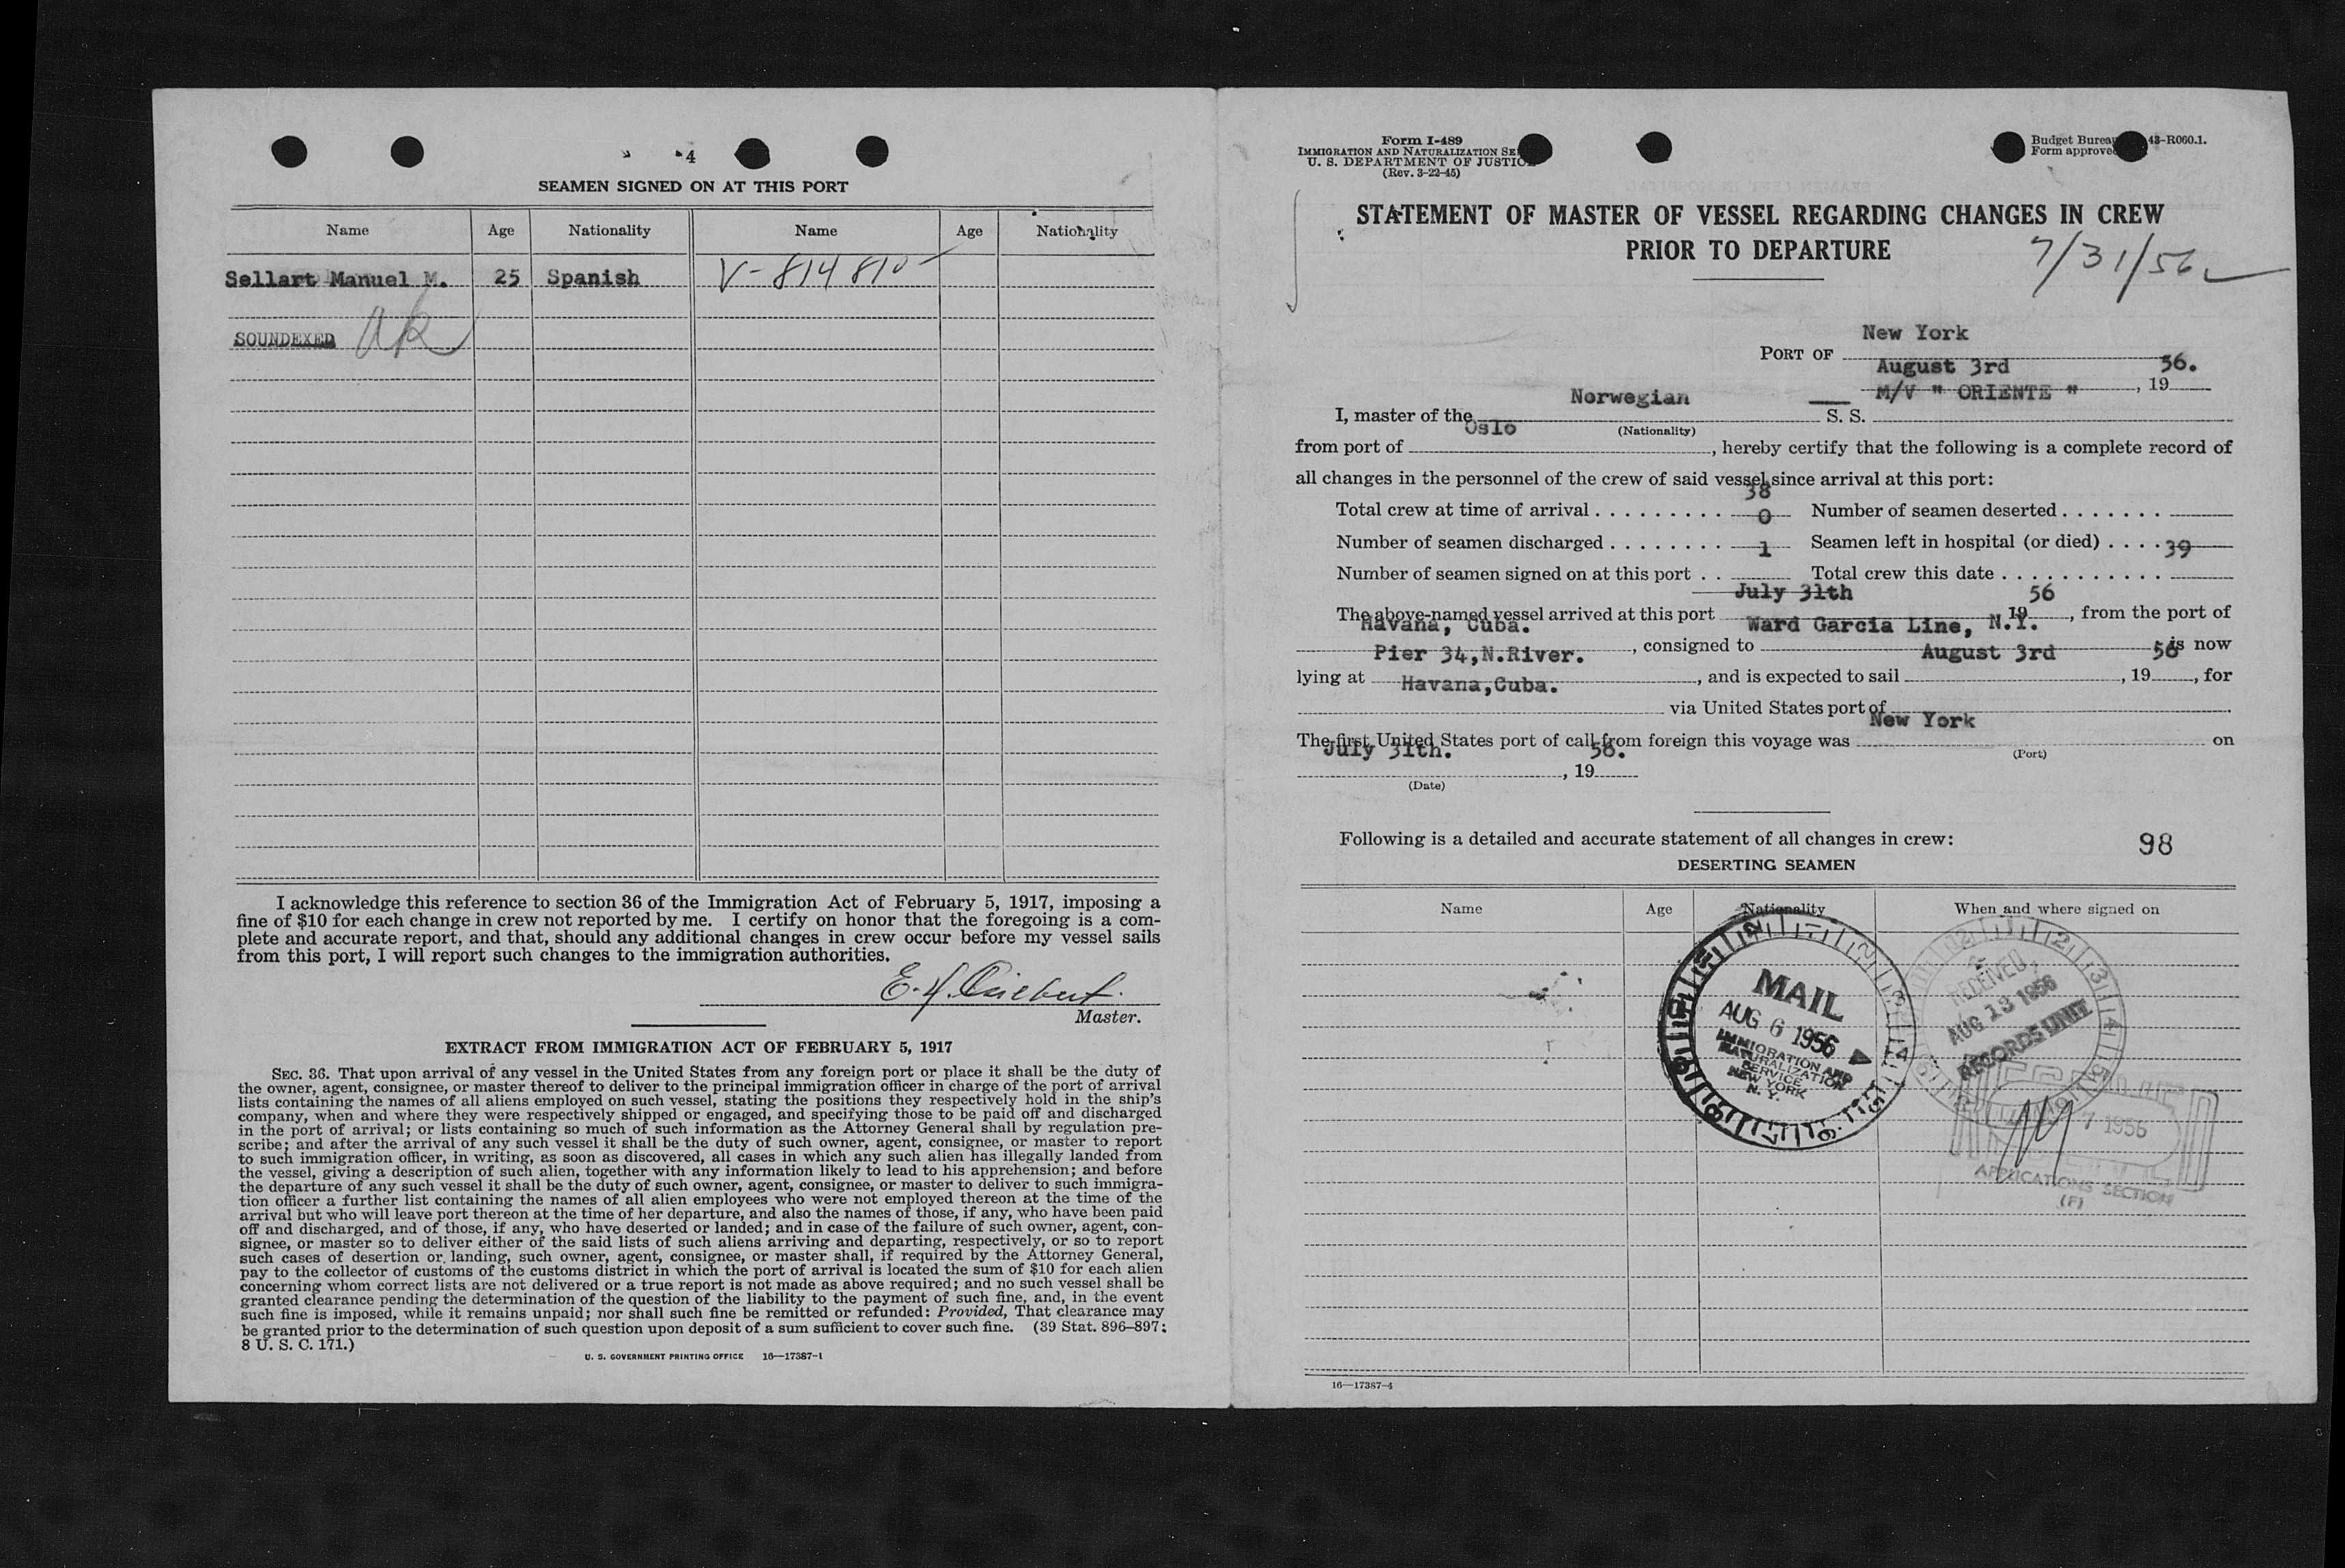 4
SEAMEN SIGNED ON AT THIS PORT
Name Age Nationality Name Age Nationality
Sellart Manuel M. 25 Spanish V-814 810
SOUNDEXED
I acknowledge this reference to section 36 of the Immigration Act of February 5, 1917, imposing a
fine of $10 for each change in crew not reported by me. I certify on honor that the foregoing is a com-
plete and accurate report, and that, should any additional changes in crew occur before my vessel sails
from this port, I will report such changes to the immigration authorities.
Master.
EXTRACT FROM IMMIGRATION ACT OF FEBRUARY 5, 1917
SEC. 36. That upon arrival of any vessel in the United States from any foreign port or place it shall be the duty of
the owner, agent, consignee, or master thereof to deliver to the principal immigration officer in charge of the port of arrival
lists containing the names of all aliens employed on such vessel, stating the positions they respectively hold in the ship's
company, when and where they were respectively shipped or engaged, and specifying those to be paid off and discharged
in the port of arrival; or lists containing so much of such information as the Attorney General shall by regulation pre-
scribe; and after the arrival of any such vessel it shall be the duty of such owner, agent, consignee, or master to report
to such immigration officer, in writing, as soon as discovered, all cases in which any such alien has illegally landed from
the vessel, giving a description of such alien, together with any information likely to lead to his apprehension; and before
the departure of any such vessel it shall be the duty of such owner, agent, consignee, or master to deliver to such immigra-
tion officer a further list containing the names of all alien employees who were not employed thereon at the time of the
arrival but who will leave port thereon at the time of her departure, and also the names of those, if any, who have been paid
off and discharged, and of those, if any, who have deserted or landed; and in case of the failure of such owner, agent, con-
signee, or master so to deliver either of the said lists of such aliens arriving and departing, respectively, or so to report
such cases of desertion or landing, such owner, agent, consignee, or master shall, if required by the Attorney General,
pay to the collector of customs of the customs district in which the port of arrival is located the sum of $10 for each alien
concerning whom correct lists are not delivered or a true report is not made as above required; and no such vessel shall be
granted clearance pending the determination of the question of the liability to the payment of such fine, and, in the event
such fine is imposed, while it remains unpaid; nor shall such fine be remitted or refunded: Provided, That clearance may
be granted prior to the determination of such question upon deposit of a sum sufficient to cover such fine. (39 Stat. 896–897;
8 U. S. C. 171.)
U. S. GOVERNMENT PRINTING OFFICE 16—17387-1
Form I-489
IMMIGRATION AND NATURALIZATION
U. S. DEPARTMENT OF JUSTICE
(Rev. 3-22-45)
Budget Bureau 43-R060.1.
Form approved
STATEMENT OF MASTER OF VESSEL REGARDING CHANGES IN CREW
PRIOR TO DEPARTURE
7/31/56
New York
PORT OF
August 3rd 56.
, 19
Norwegian M/V " ORIENTE "
I, master of the S. S.
Oslo (Nationality)
from port of , hereby certify that the following is a complete record of
all changes in the personnel of the crew of said vessel since arrival at this port:
38
Total crew at time of arrival . . . . . . . . . Number of seamen deserted . . . . . . .
0
Number of seamen discharged . . . . . . . . Seamen left in hospital (or died) . . . .
1 39
Number of seamen signed on at this port . . Total crew this date . . . . . . . . . . .
July 31th 56
The above-named vessel arrived at this port 19 , from the port of
Havana, Cuba. Ward Garcia Line, N.Y.
, consigned to is now
Pier 34,N.River. August 3rd 56
lying at , and is expected to sail , 19 , for
Havana,Cuba.
via United States port of
New York
The first United States port of call from foreign this voyage was on
(Port)
July 31th. 56.
, 19
(Date)
Following is a detailed and accurate statement of all changes in crew:
98
DESERTING SEAMEN
Name Age Nationality When and where signed on
MAIL
AUG 6 1956
IMMIGRATION AND
NATURALIZATION
SERVICE
NEW YORK
N. Y.
RECEIVED
AUG 13 1956
RECORDS UNIT
7 1956
APPLICATIONS SECTION
(F)
16—17387-4